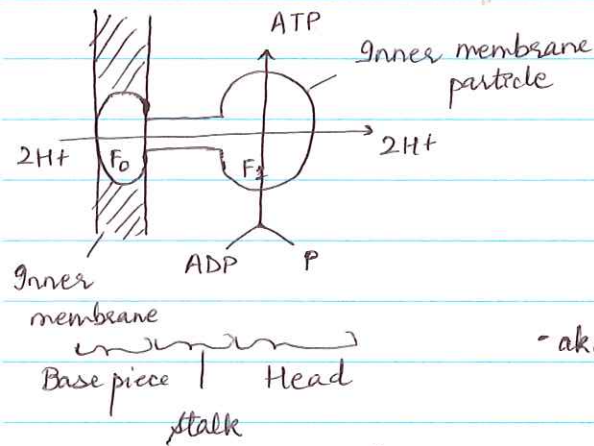 ATP
Inner membrane
particle
2H+
F0
F1
2H+
ADP
P
Inner
membrane
- ak
Base piece
Head
Stalk